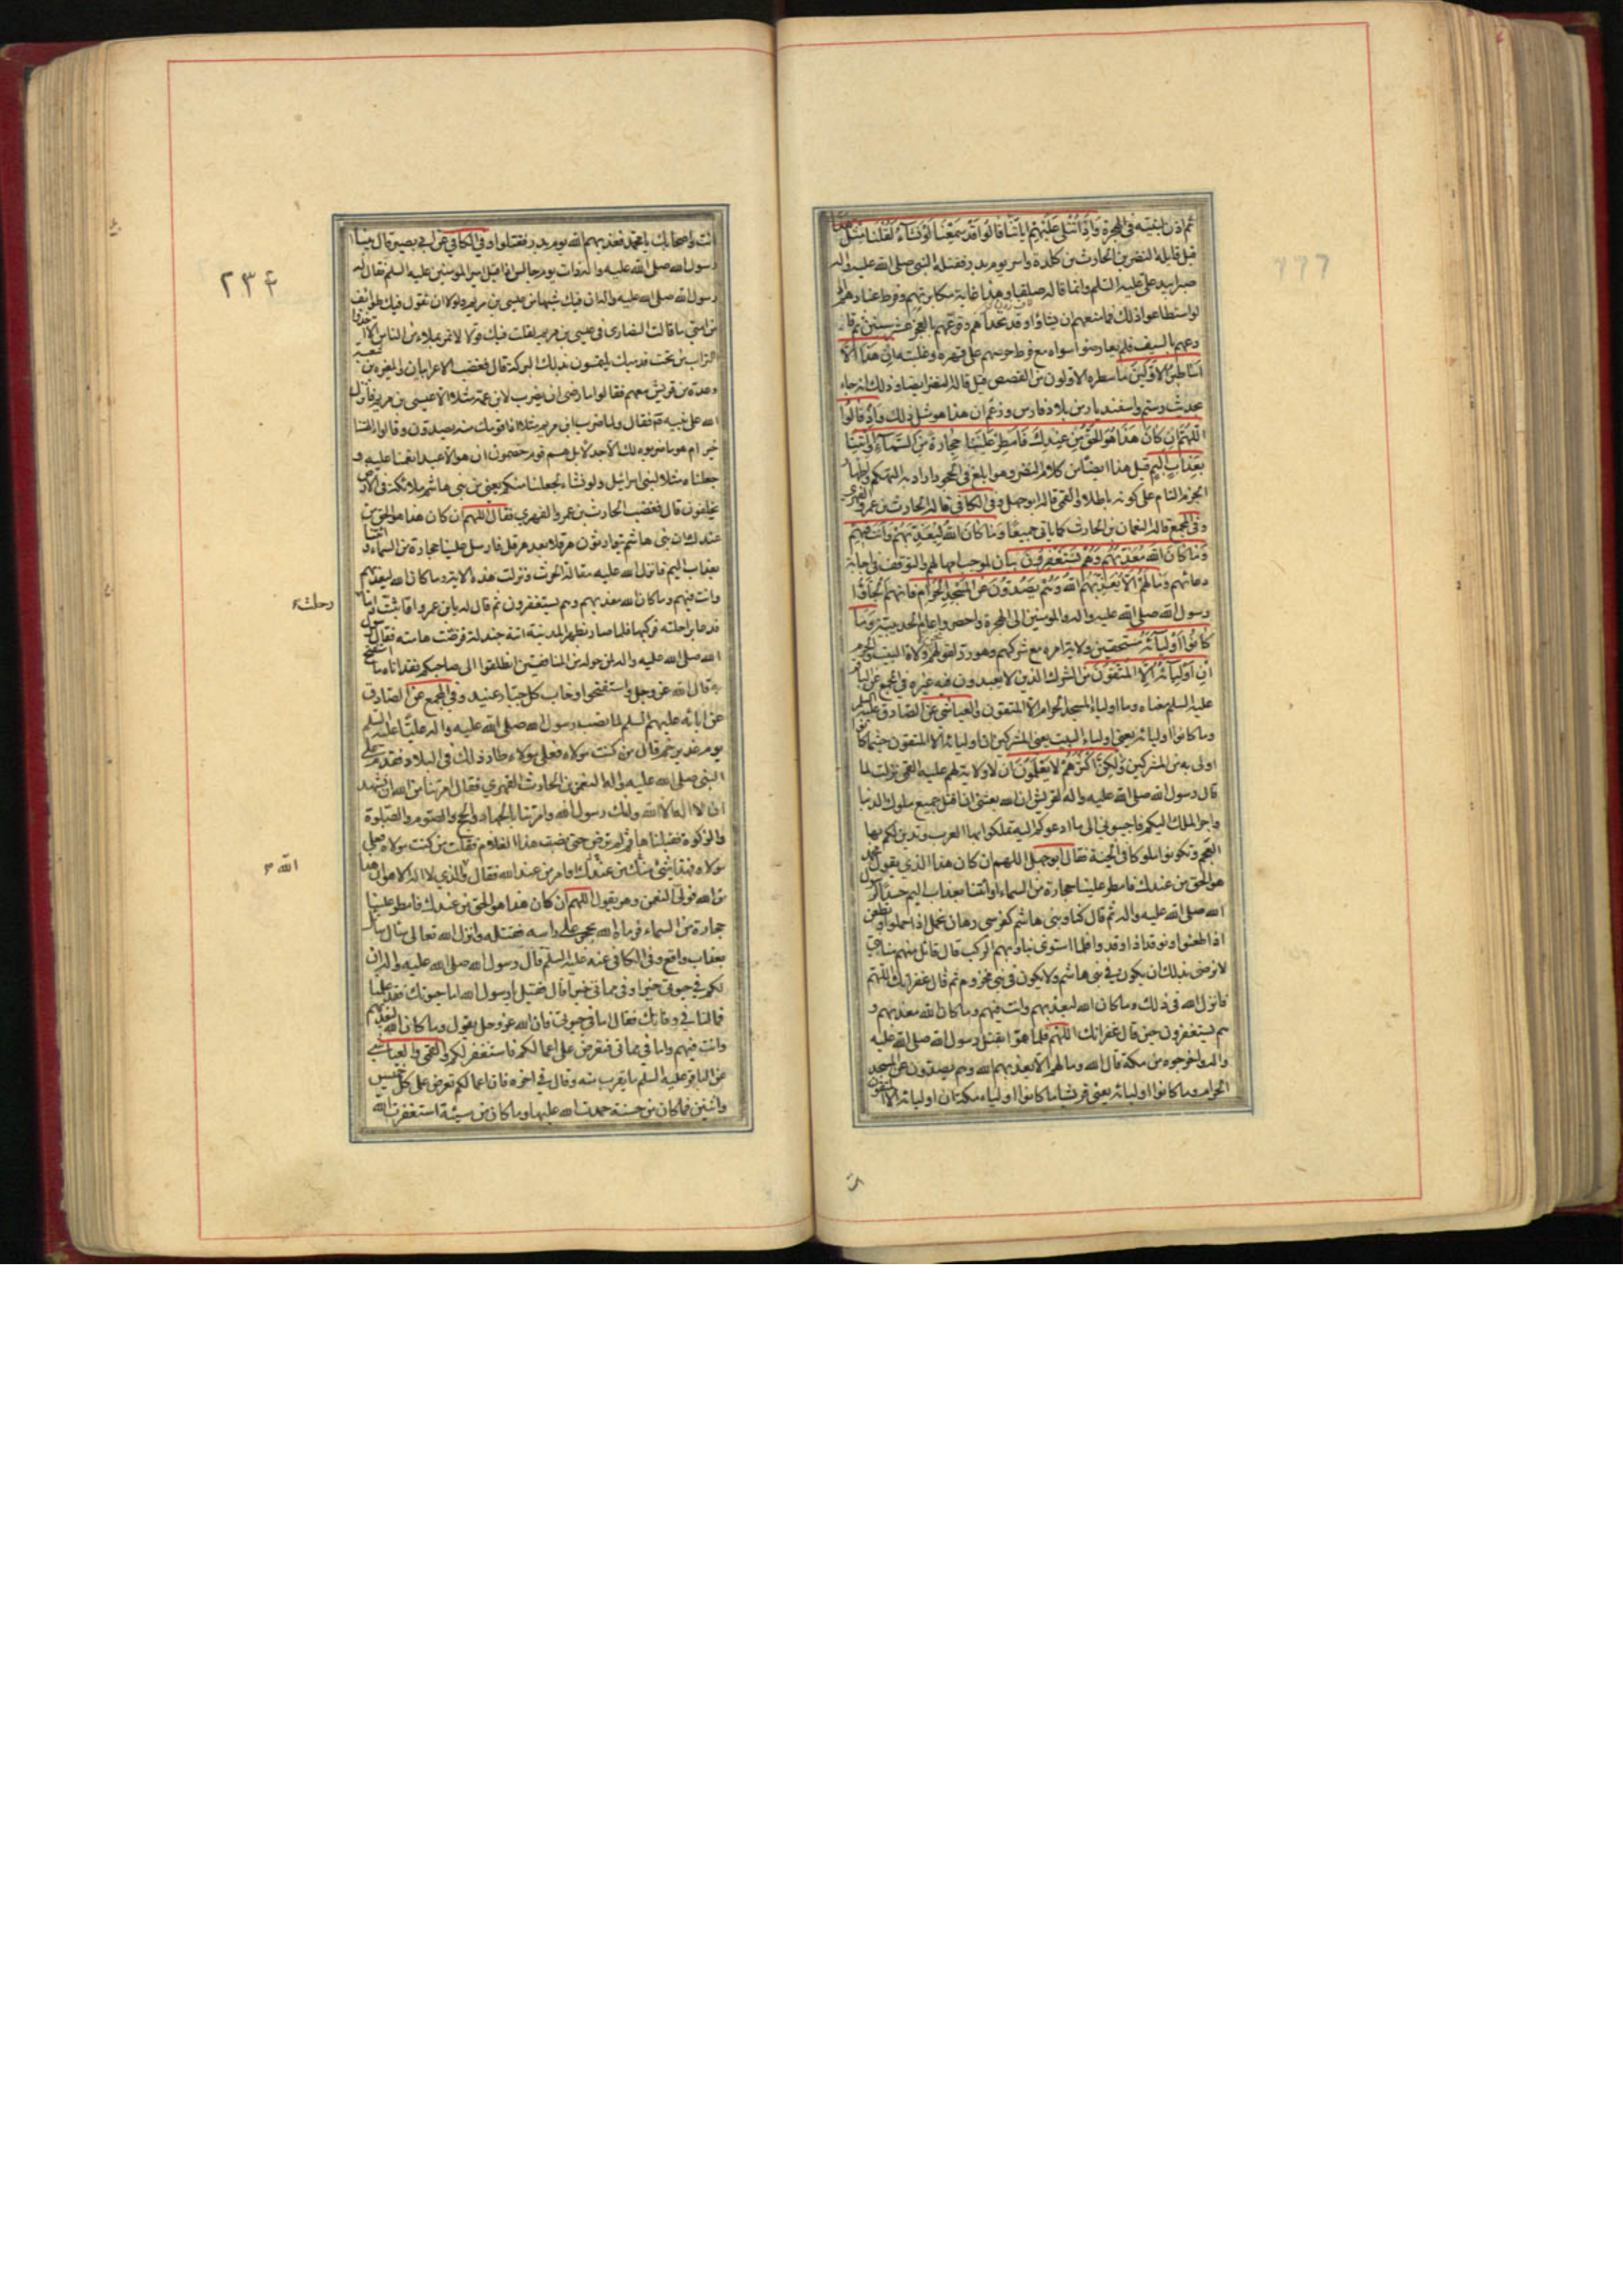 ثم اذن لبغيته في الهجرة وَاِذَا تُتْلٰى عَلَيْهِمْ اٰيَاتُنَا قَالُوا قَدْ سَمِعْنَا لَوْ نَشَاءُ لَقُلْنَا مِثْلَ هٰذَا
قيل قايله النضر بن الحارث بن كلدة واسر يوم بدر فقتله النبي صلى الله عليه واله
صبرا بيد علي عليه السلم وانما قاله صلفا وهذا غاية مكابرتهم وفرط عنادهم اذ
لو استطاعوا ذلك فما منعهم ان يشاؤا وقد تحداهم وقرعهم بالعجز عشر سنين ثم قا
رعهم بالسيف فلم يعارضوا سواه مع فرط حرصهم على قهره وغلبته اِنْ هٰذَا اِلَّا
اَسَاطِيرُ الْاَوَّلِينَ ما سطره الاولون من القصص قيل قاله النضر ايضا وذلك انه جاء
بحديث رستم واسفنديار من بلاد فارس وزعم ان هذا هو مثل ذلك وَاِذْ قَالُوا
اللّٰهُمَّ اِنْ كَانَ هٰذَا هُوَ الْحَقَّ مِنْ عِنْدِكَ فَاَمْطِرْ عَلَيْنَا حِجَارَةً مِنَ السَّمَاءِ اَوِ ائْتِنَا
بِعَذَابٍ اَلِيمٍ قيل هذا ايضا من كلام النضر وهو ابلغ في الجحود اراد به التهكم واظهار
الجزم التام على كونه باطلا والقمي قاله ابو جهل وفي الكافي قاله الحارث بن عمرو الفهري
وفي المجمع قاله النعمان بن الحارث كما ياتي جميعا وَمَا كَانَ اللّٰهُ لِيُعَذِّبَهُمْ وَاَنْتَ فِيهِمْ
وَمَا كَانَ اللّٰهُ مُعَذِّبَهُمْ وَهُمْ يَسْتَغْفِرُونَ بيان لموجب امهالهم والتوقف في اجابة
دعائهم وَمَا لَهُمْ اَلَّا يُعَذِّبَهُمُ اللّٰهُ وَهُمْ يَصُدُّونَ عَنِ الْمَسْجِدِ الْحَرَامِ فانهم الجاؤا
رسول الله صلى الله عليه واله والمومنين الى الهجرة واحصروا عام الحديبية وَمَا
كَانُوا اَوْلِيَاءَهُ مستحقين ولاية امره مع شركهم وهو رد لقولهم نحن ولاة البيت والحرم
اِنْ اَوْلِيَاؤُهُ اِلَّا الْمُتَّقُونَ من الشرك الذين لا يعبدون فيه غيره في المجمع عن الباقر
عليه السلم معناه وما اولياء المسجد الحرام الا المتقون والعياشي عن الصادق عليه السلم
وما كانوا اوليائه يعني اولياء البيت يعني المشركين ان اوليائه الا المتقون حيثما كانوا
اولى به من المشركين وَلٰكِنَّ اَكْثَرَهُمْ لَا يَعْلَمُونَ ان لا ولاية لهم عليه القمي نزلت لما
قال رسول الله صلى الله عليه واله لقريش ان الله بعثني ان اقتل جميع ملوك الدنيا
واجر الملك اليكم فاجيبوني الى ما ادعوكم اليه تملكوا بها العرب وتدين لكم بها
العجم وتكونوا ملوكا في الجنة فقال ابو جهل اللهم ان كان هذا الذي يقول محمد
هو الحق من عندك فامطر علينا حجارة من السماء او ائتنا بعذاب اليم حسدا لرسول
الله صلى الله عليه واله ثم قال كنا وبني هاشم كفرسي رهان نحمل اذا حملوا ونطعن
اذا طعنوا ونوقد اذا اوقدوا فلما استوى بنا وبهم الركب قال قائل منهم منا نبي
لا نرضى بذلك ان يكون في بني هاشم ولا يكون في بني مخزوم ثم قال غفرانك اللهم
فانزل الله في ذلك وما كان الله ليعذبهم وانت فيهم وما كان الله معذبهم و
هم يستغفرون حين قال غفرانك اللهم فلما هموا بقتل رسول الله صلى الله عليه
واله واخرجوه من مكة قال الله وما لهم الا يعذبهم الله وهم يصدون عن المسجد
الحرام وما كانوا اوليائه يعني قريشا ما كانوا اولياء مكة ان اوليائه الا المتقون
٢٣٤
انت واصحابك يا محمد فعذبهم الله يوم بدر فقتلوا وفي الكافي عن ابي بصير قال بينا
رسول الله صلى الله عليه واله ذات يوم جالس اذا اقبل امير المومنين عليه السلم فقال له
رسول الله صلى الله عليه واله ان فيك شبها من عيسى بن مريم ولولا ان تقول فيك طوائف
من امتي ما قالت النصارى في عيسى بن مريم لقلت فيك قولا لا تمر بملاء من الناس الا اخذوا
التراب من تحت قدميك يلتمسون بذلك البركة قال فغضب الاعرابيان والمغيرة بن شعبة
وعدة من قريش معهم فقالوا ما رضي ان يضرب لابن عمه مثلا الا عيسى بن مريم فانزل
الله على نبيه ص فقال ولما ضرب ابن مريم مثلا اذا قومك منه يصدون وقالوا ءالهتنا
خير ام هو ما ضربوه لك الا جدلا بل هم قوم خصمون ان هو الا عبد انعمنا عليه و
جعلناه مثلا لبني اسرائيل ولو نشاء لجعلنا منكم يعني من بني هاشم ملائكة في الارض
يخلفون قال فغضب الحارث بن عمرو الفهري فقال اللهم ان كان هذا هو الحق من
عندك ان بني هاشم يتوارثون هرقلا بعد هرقل فارسل علينا حجارة من السماء او ائتنا
بعذاب اليم فانزل الله عليه مقالة الحرث ونزلت هذه الاية وما كان الله ليعذبهم
وانت فيهم وما كان الله معذبهم وهم يستغفرون ثم قال له يا بن عمرو اما تبت واما
رحلت
فدعا براحلته فركبها فلما صار بظهر المدينة اتته جندلة فرضت هامته فقال رسول
الله صلى الله عليه واله لمن حوله من المنافقين انطلقوا الى صاحبكم فقد اتاه ما استفتح
به قال الله عز وجل واستفتحوا وخاب كل جبار عنيد وفي المجمع عن الصادق
عن ابائه عليهم السلم لما نصب رسول الله صلى الله عليه واله عليا عليه السلم
يوم غدير خم قال من كنت مولاه فعلي مولاه طار ذلك في البلاد فقدم على
النبي صلى الله عليه واله النعمن بن الحارث الفهري فقال امرتنا من الله ان نشهد
ان لا اله الا الله وانك رسول الله وامرتنا بالجهاد والحج والصوم والصلوة
والزكوة فقبلناها ثم لم ترض حتى نصبت هذا الغلام فقلت من كنت مولاه فعلي
مولاه فهذا شيء منك من عندك او امر من عند الله فقال والذي لا اله الا هو ان هذا
الله
من الله فولى النعمن وهو يقول اللهم ان كان هذا هو الحق من عندك فامطر علينا
حجارة من السماء فرماه الله بحجر على راسه فقتله وانزل الله تعالى سال سائل
بعذاب واقع وفي الكافي عنه عليه السلم قال رسول الله صلى الله عليه واله ان
لكم في حيوتي خيرا وفي مماتي خيرا قال فقيل يا رسول الله اما حيوتك فقد علمنا
فما لنا في وفاتك فقال اما في حيوتي فان الله عز وجل يقول وما كان الله ليعذبهم
وانت فيهم واما في مماتي فتعرض علي اعمالكم فاستغفر لكم والقمي والعياشي
عن الباقر عليه السلم ما يقرب منه وقال في اخره فان اعمالكم تعرض علي كل خميس
واثنين فما كان من حسنة حمدت الله عليها وما كان من سيئة استغفرت الله